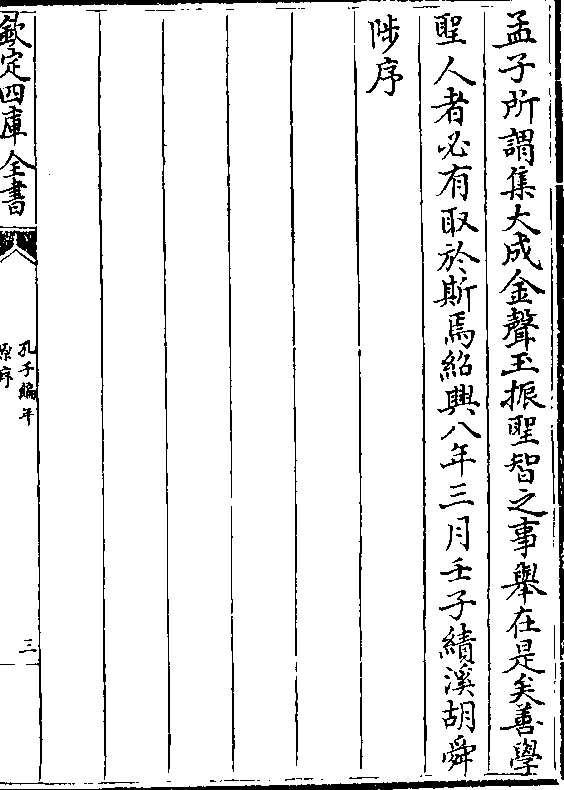 孟子所謂集大成金聲玉振聖智之事舉在是矣善學
聖人者必有取於斯焉紹興八年三月壬子績溪胡舜
陟序
欽定四庫全書
孔子編年
原序
三